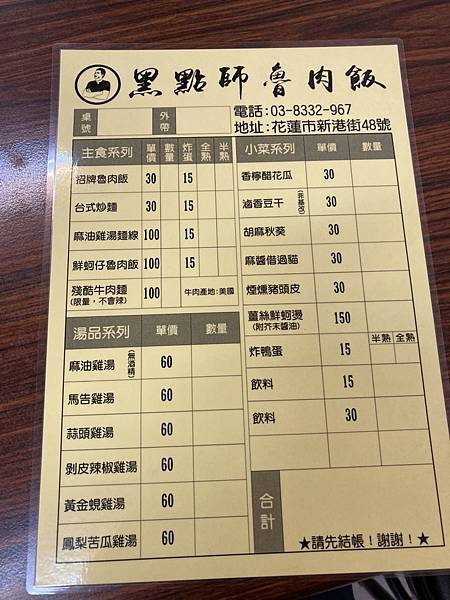 黑點師魯肉飯
桌號 外帶
電話:03-8332-967
地址:花蓮市新港街48號
主食系列 單價 數量 炸蛋 全熟 半熟
招牌魯肉飯 30 15
台式炒麵 30 15
麻油雞湯麵線 100 15
鮮蚵仔魯肉飯 100 15
殘酷牛肉麵 100 牛肉產地:美國
(限量,不會辣)
湯品系列 單價 數量
麻油雞湯 (無酒精) 60
馬告雞湯 60
蒜頭雞湯 60
剝皮辣椒雞湯 60
黃金蜆雞湯 60
鳳梨苦瓜雞湯 60
小菜系列 單價 數量
香檸醋花瓜 30
滷香豆干 (非基改) 30
胡麻秋葵 30
麻醬借過貓 30
煙燻豬頭皮 30
薑絲鮮蚵燙 150
(附芥末醬油)
半熟 全熟
炸鴨蛋 15
飲料 15
飲料 30
合計
★請先結帳!謝謝!★